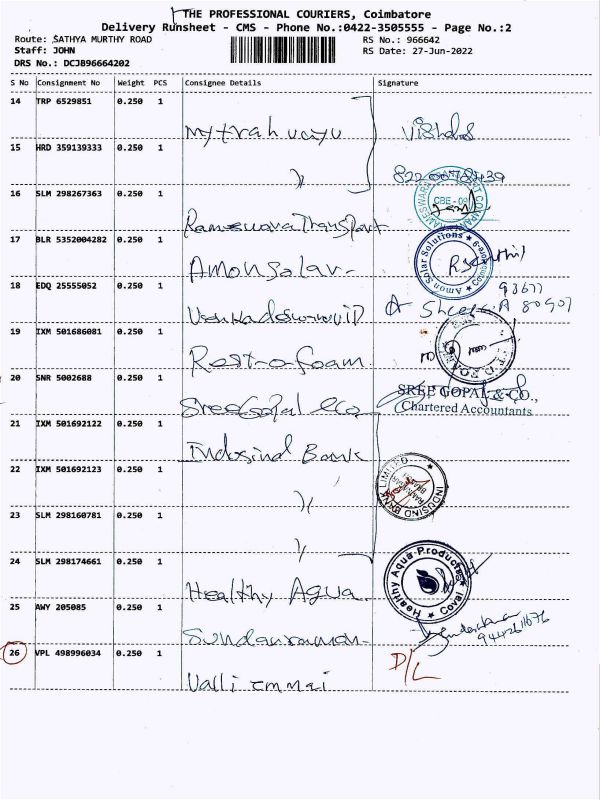 THE PROFESSIONAL COURIERS, Coimbatore
Delivery Runsheet - CMS - Phone No.:0422-3505555 - Page No.:2
Route: SATHYA MURTHY ROAD
RS No.: 966642
Staff: JOHN
RS Date: 27-Jun-2022
DRS No.: DCJB96664202
S No Consignment No Weight PCS Consignee Details Signature
14 TRP 6529851 0.250 1
mytrah vayu
15 HRD 359139333 0.250 1
16 SLM 298267363 0.250 1
CBE - 09
Rameswara Transport
17 BLR 5352004282 0.250 1
Amon Solar Solutions
Amon Solar
18 EDQ 25555052 0.250 1
93677
80907
19 IXM 501686081 0.250 1
Rest-o-foam
20 SNR 5002688 0.250 1
SREE GOPAL & CO.,
Chartered Accountants
Sree Gopal & co
21 IXM 501692122 0.250 1
Indusind Bank
22 IXM 501692123 0.250 1
INDUSIND BANK LIMITED
23 SLM 298160781 0.250 1
24 SLM 298174661 0.250 1
Healthy Aqua Products
Healthy Aqua
25 AWY 205085 0.250 1
Sundararaman
26 VPL 498996034 0.250 1
D/L
Valli ammai